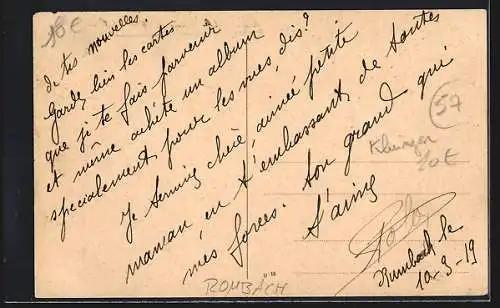 10 €
de tes nouvelles.
Garde bien les cartes
que je te fais parvenir
et même achète un album
specialement pour les vues, dis?
Je termine chère, aimée petite
maman, en t'embrassant de toutes
mes forces. ton grand qui
t'aime
57
10 €
Rombach le
10-3-19
ROMBACH